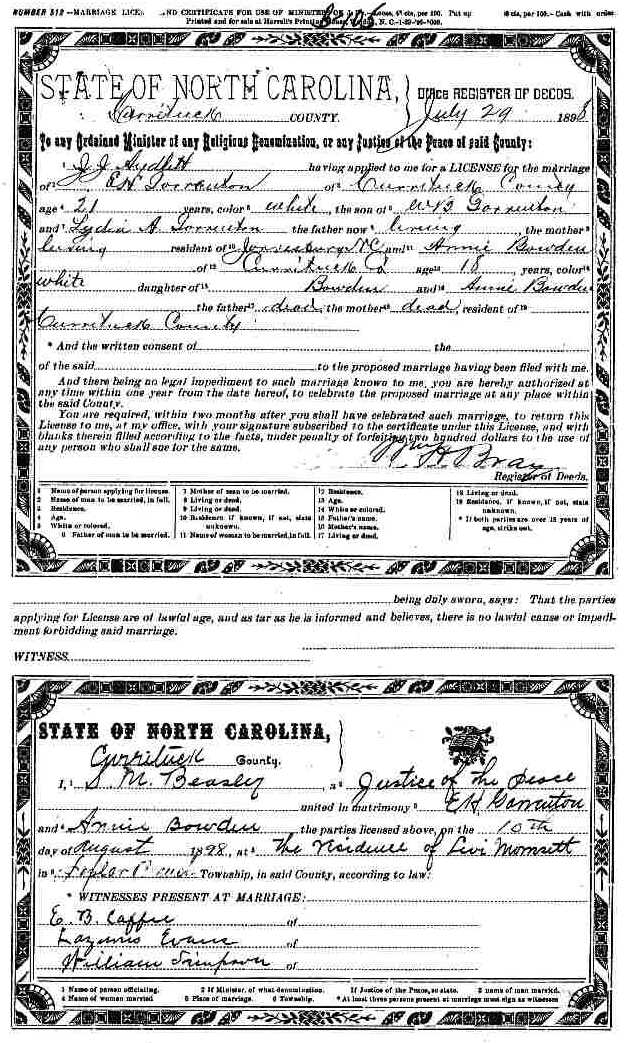 NUMBER 512—MARRIAGE LICENSE AND CERTIFICATE FOR USE OF MINISTERS OR cts, per 100. Put up cts, per 100.—Cash with order.
Printed and for sale at Harrell's Printing House, Weldon, N. C.
STATE OF NORTH CAROLINA, OFFICE REGISTER OF DEEDS.
Currituck COUNTY. July 29 1898
To any Ordained Minister of any Religious Denomination, or any Justice of the Peace of said County:
J. J. Sydlett having applied to me for a LICENSE for the marriage
of E H Gorrenton of Currituck County
age 21 years, color white, the son of W B Gorrenton
and Lydia A Gorrenton the father now living, the mother
living resident of N C and Annie Bowden
of Currituck Co age 18, years, color
white daughter of Bowden and Annie Bowden
the father dead, the mother dead, resident of
Currituck County
* And the written consent of the
of the said to the proposed marriage having been filed with me.
And there being no legal impediment to such marriage known to me, you are hereby authorized at
any time within one year from the date hereof, to celebrate the proposed marriage at any place within
the said County.
You are required, within two months after you shall have celebrated such marriage, to return this
License to me, at my office, with your signature subscribed to the certificate under this License, and with
blanks therein filled according to the facts, under penalty of forfeiting two hundred dollars to the use of
any person who shall sue for the same.
Bray
Register of Deeds.
1 Name of person applying for license.
2 Name of man to be married, in full.
3 Residence.
4 Age.
5 White or colored.
6 Father of man to be married.
7 Mother of man to be married.
8 Living or dead.
9 Living or dead.
10 Residence, if known, if not, state unknown.
11 Name of woman to be married, in full.
12 Residence.
13 Age.
14 White or colored.
15 Father's name.
16 Mother's name.
17 Living or dead.
18 Living or dead.
19 Residence, if known, if not, state unknown.
* If both parties are over 18 years of age, strike out.
being duly sworn, says: That the parties
applying for License are of lawful age, and as far as he is informed and believes, there is no lawful cause or impedi-
ment forbidding said marriage.
WITNESS
STATE OF NORTH CAROLINA,
Currituck County.
I, S M. Beasley, a Justice of the Peace
united in matrimony E H Garrenton
and Annie Bowden the parties licensed above, on the 10th
day of August 1898, at The residence of Levi
in Poplar Township, in said County, according to law:
* WITNESSES PRESENT AT MARRIAGE:
E. B. Caffee of
Evans of
William Simpson of
1 Name of person officiating.
2 If Minister, of what denomination.
If Justice of the Peace, so state.
3 name of man married.
4 Name of woman married
5 Place of marriage.
6 Township.
* At least three persons present at marriage must sign as witnesses